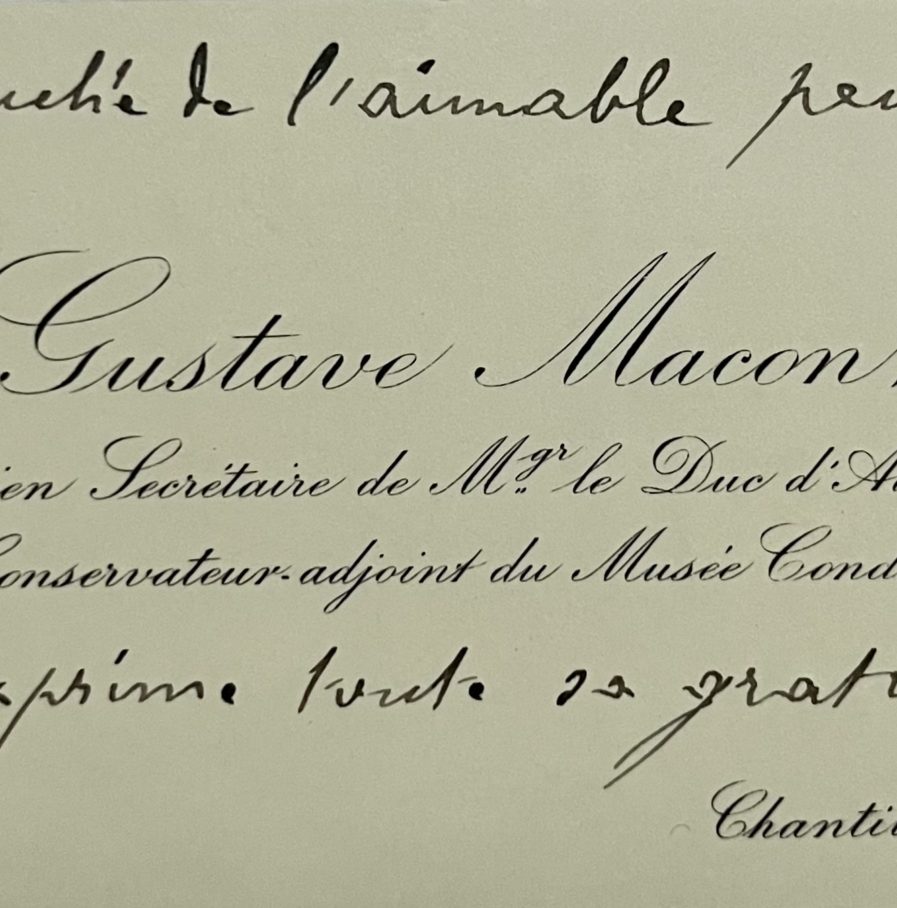 uchée de l'aimable pen
Gustave Macon
ien Secrétaire de Mgr le Duc d'A
Conservateur-adjoint du Musée Cond
xprime toute sa grat
Chanti